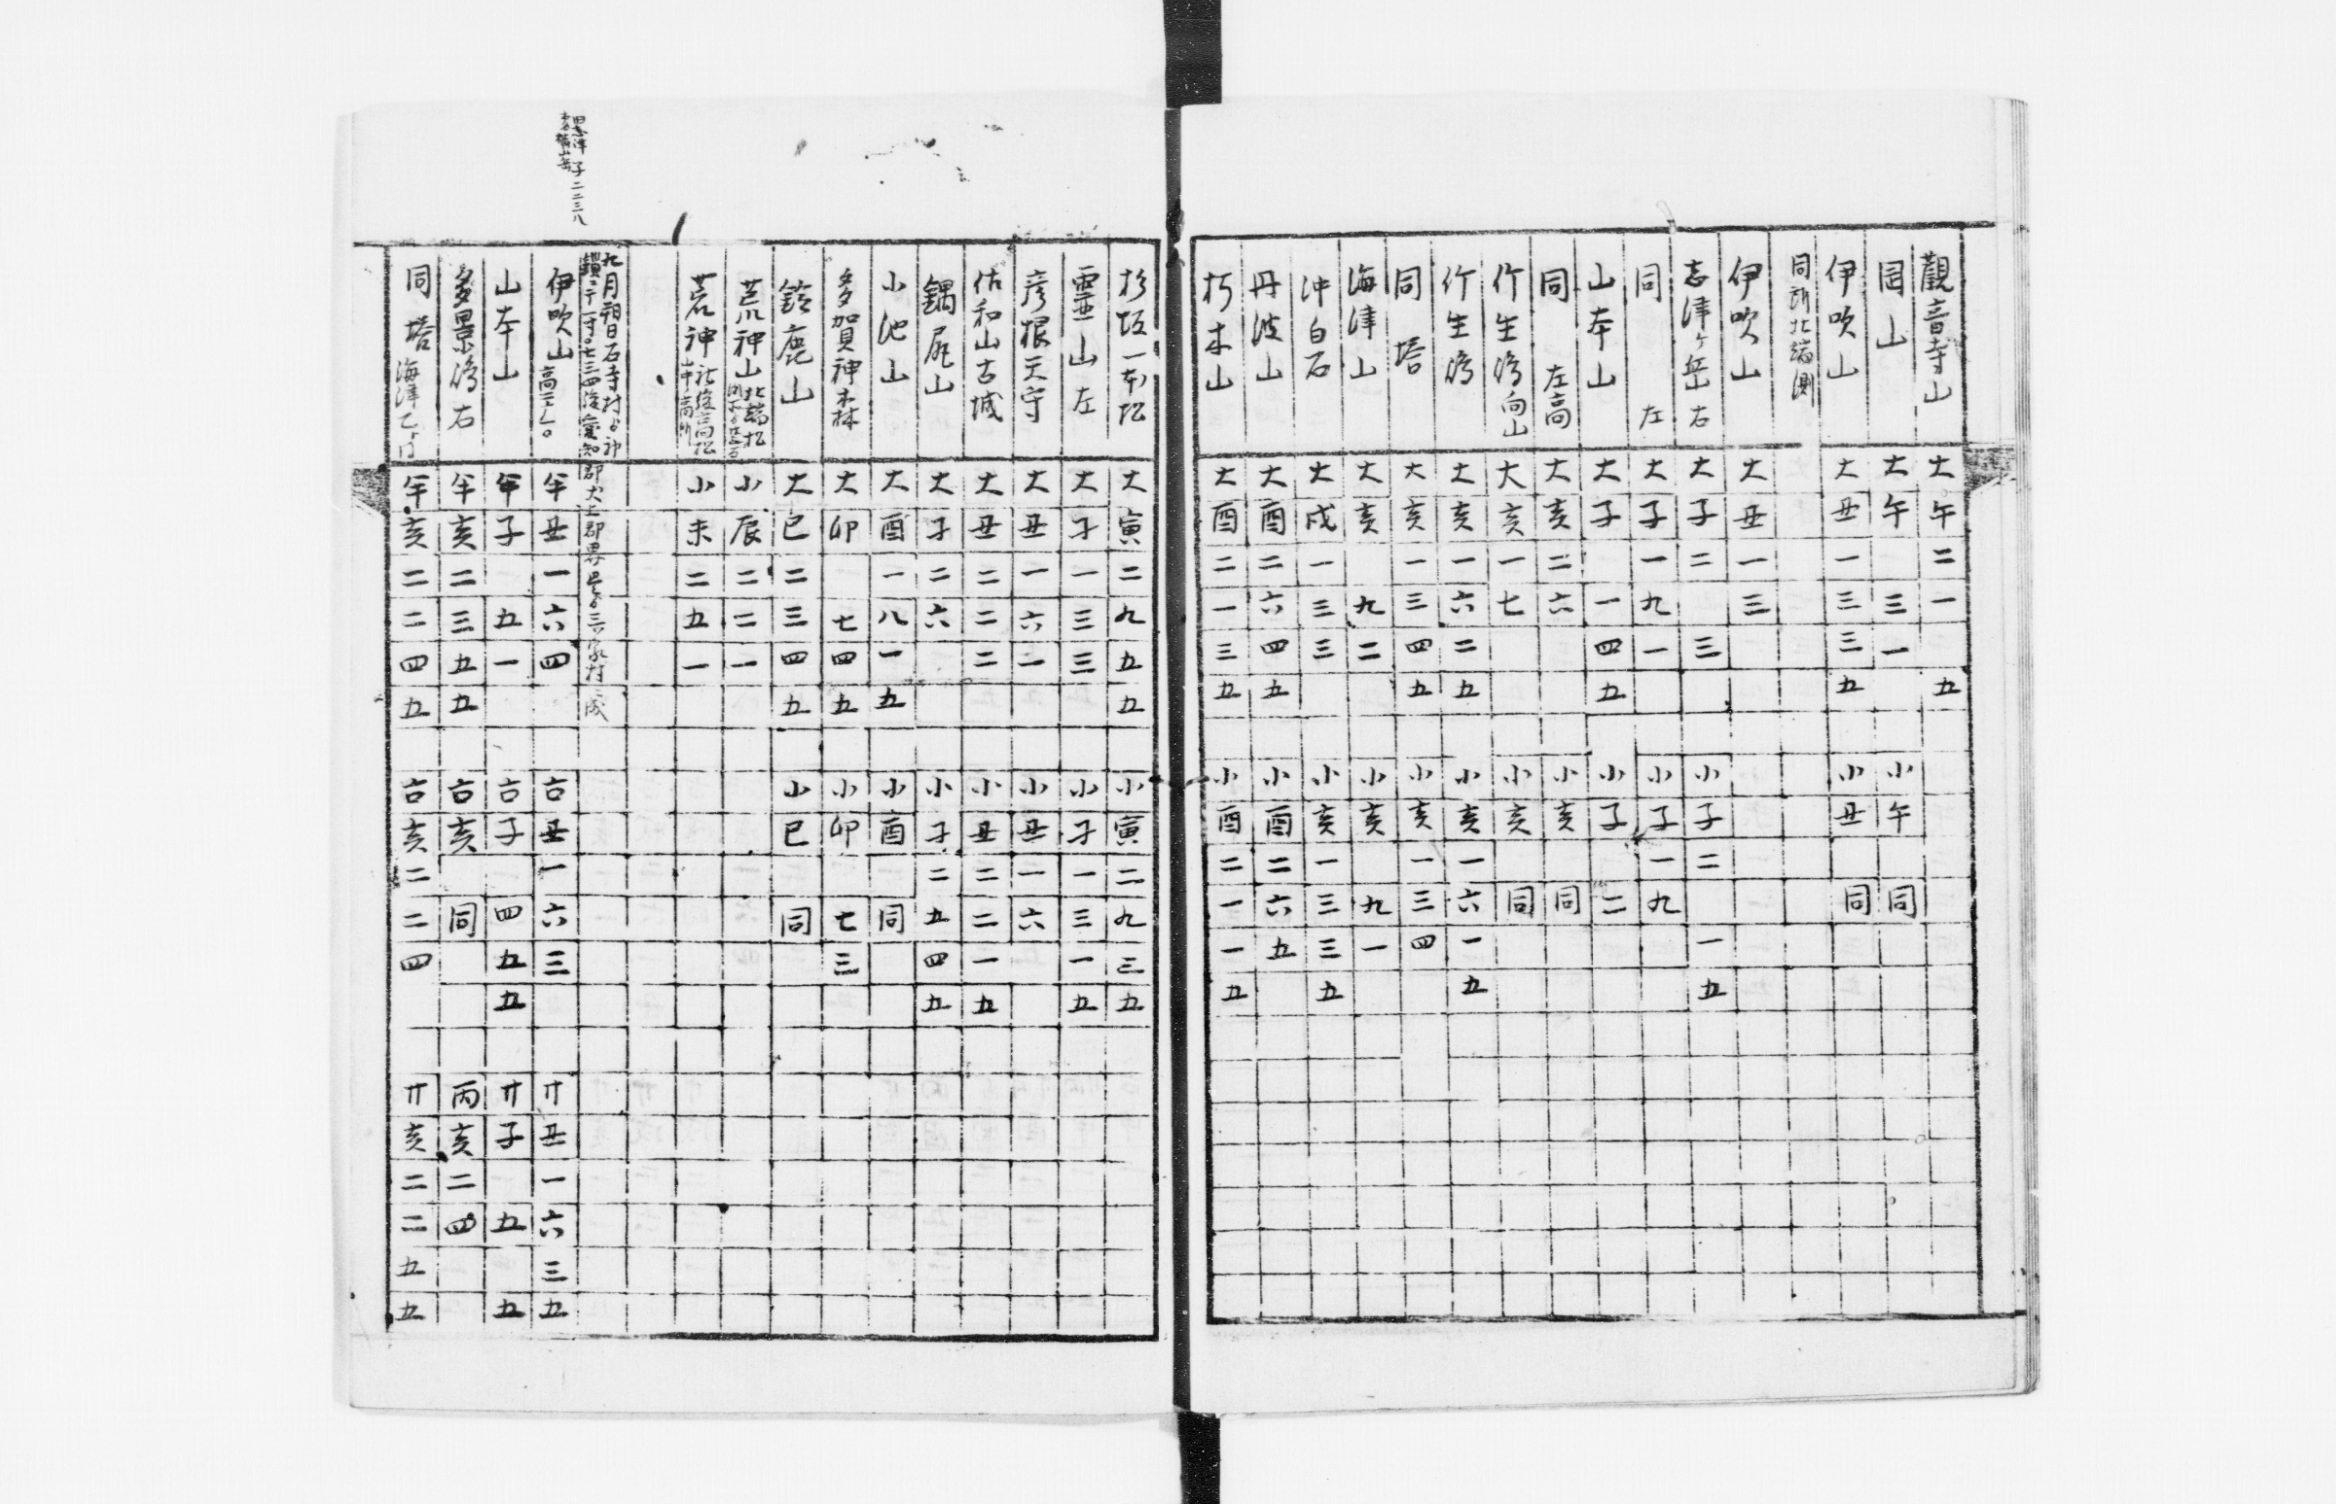 觀音寺山 大午二一 五
岡山 大午 三一 小午 同
伊吹山 大丑一三三五 小丑 同
同所北端測
伊吹山 大丑一三
志津ヶ岳 右 大子二 三 小子二 一五
同 左 大子一九一 小子一九
山本山 大子 一四五 小子 二
同 左高 大亥二六 小亥 同
竹生島向山 大亥一七 小亥 同
竹生島 大亥一六二五 小亥一六一五
同 塔 大亥一三四五 小亥一三四
海津山 大亥 九二 小亥 九一
沖白石 大戌一三三 小亥一三三五
丹波山 大酉二六四五 小酉二六五
朽木山 大酉二一三五 小酉二一一五
杉坂一本松 大寅二九五五 小寅二九三五
靈山 左 大子一三三 小子一三一五
彦根天守 大丑一六一 小丑一六
佐和山古城 大丑二二二 小丑二二一五
鍋尻山 大子二六 小子二五四五
小池山 大酉一八一五 小酉 同
多賀神森 大卯 七四五 小卯 七三
鈴鹿山 大巳二三四五 小巳 同
荒神山 北端松 小辰二二一
荒神 社後高松 山中高所 小未二五一
九月朔日石寺村より神
伊吹山 高 半丑一六四 古丑一六三 廾丑一六三五
山本山 半子 五一 古子 四五五 廾子 五 五
多景島 右 半亥二三五五 古亥 同 丙亥二四
同 塔 海津 半亥二二四五 古亥二二四 廾亥二二五五
子二二三八